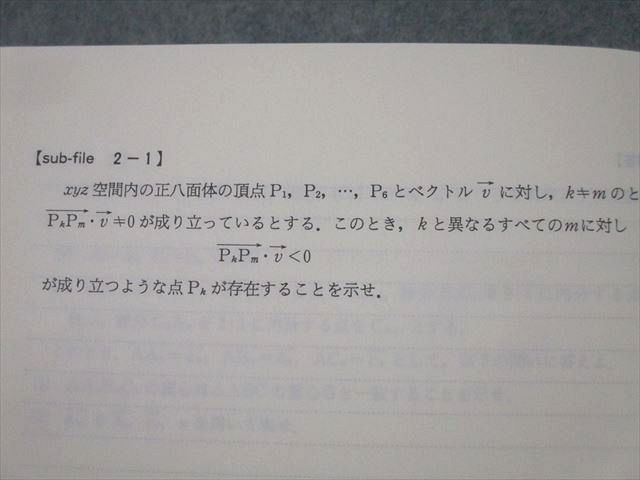 【sub-file 2－1】
xyz空間内の正八面体の頂点P₁, P₂, …, P₆とベクトル\vec{v}に対し, k≠mのと
\overrightarrow{PₖPₘ}・\vec{v}≠0が成り立っているとする. このとき, kと異なるすべてのmに対し
\overrightarrow{PₖPₘ}・\vec{v}<0
が成り立つような点Pₖが存在することを示せ.